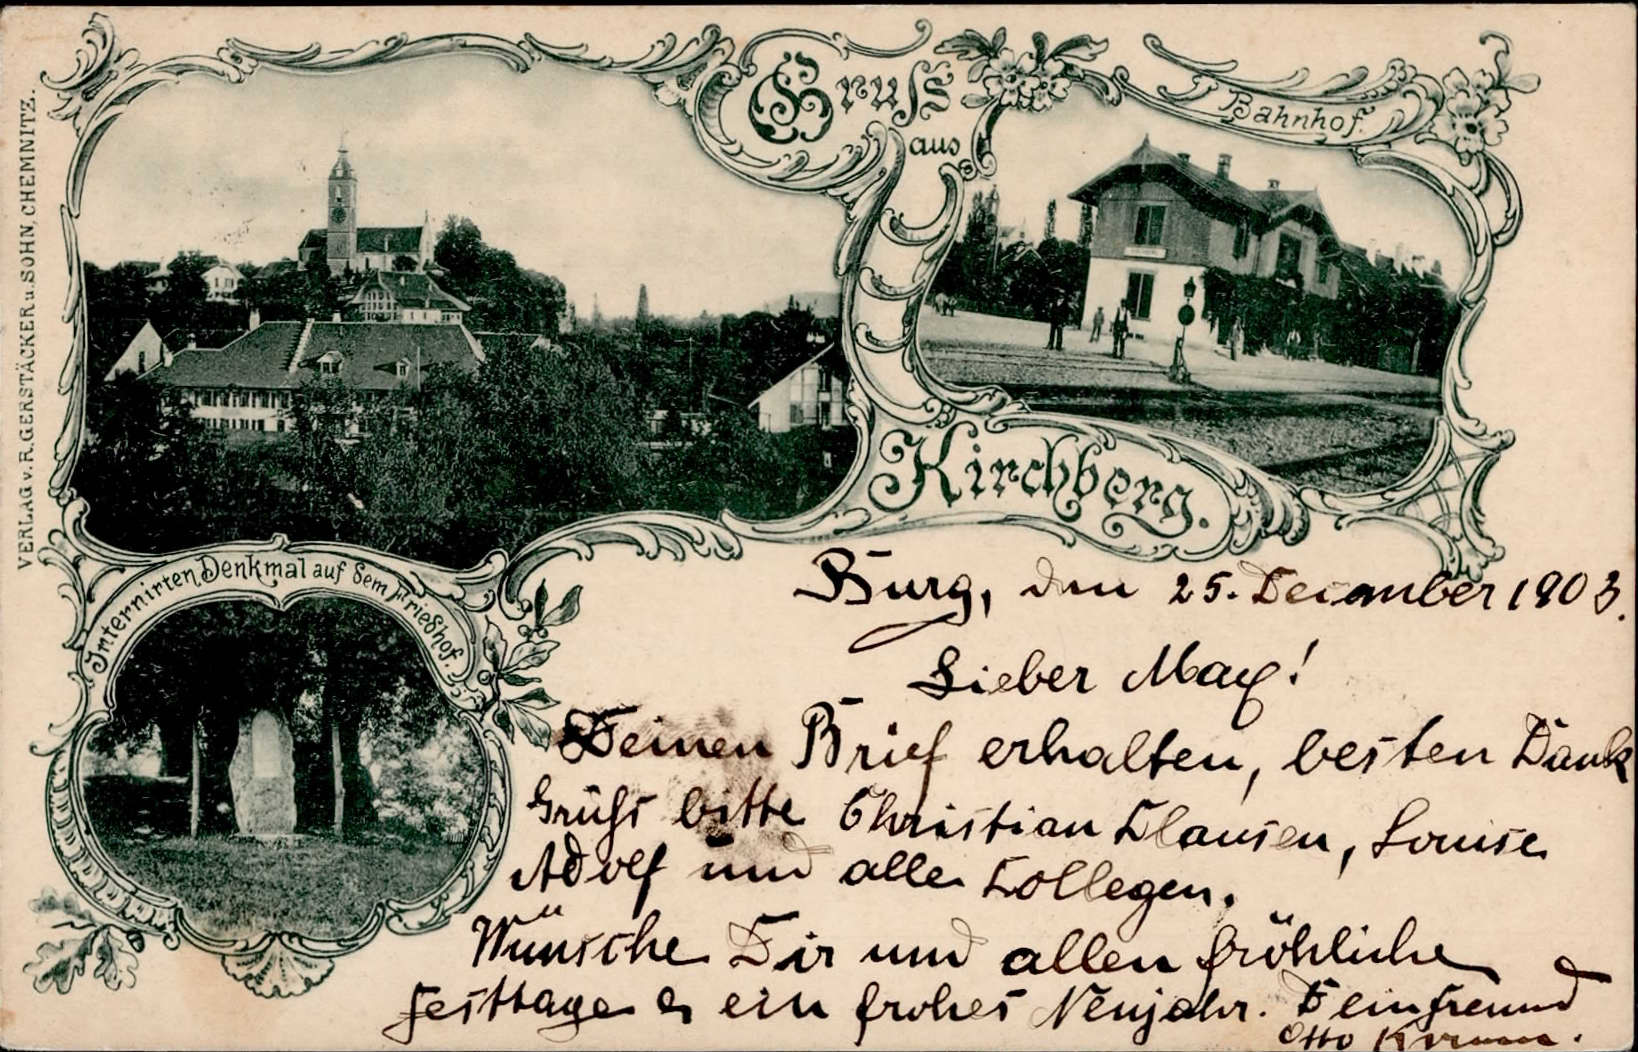 Gruss
aus
Kirchberg.
Bahnhof.
VERLAG v. R. GERSTÄCKER u. SOHN, CHEMNITZ.
Internirten Denkmal auf dem Friedhof.
Burg, den 25. December 1903.
Lieber Max!
Deinen Brief erhalten, besten Dank
Grüss bitte Christian Clausen, Louise
Adolf und alle Collegen.
Wünsche Dir und allen fröhliche
Festtage & ein frohes Neujahr. Dein Freund
Otto